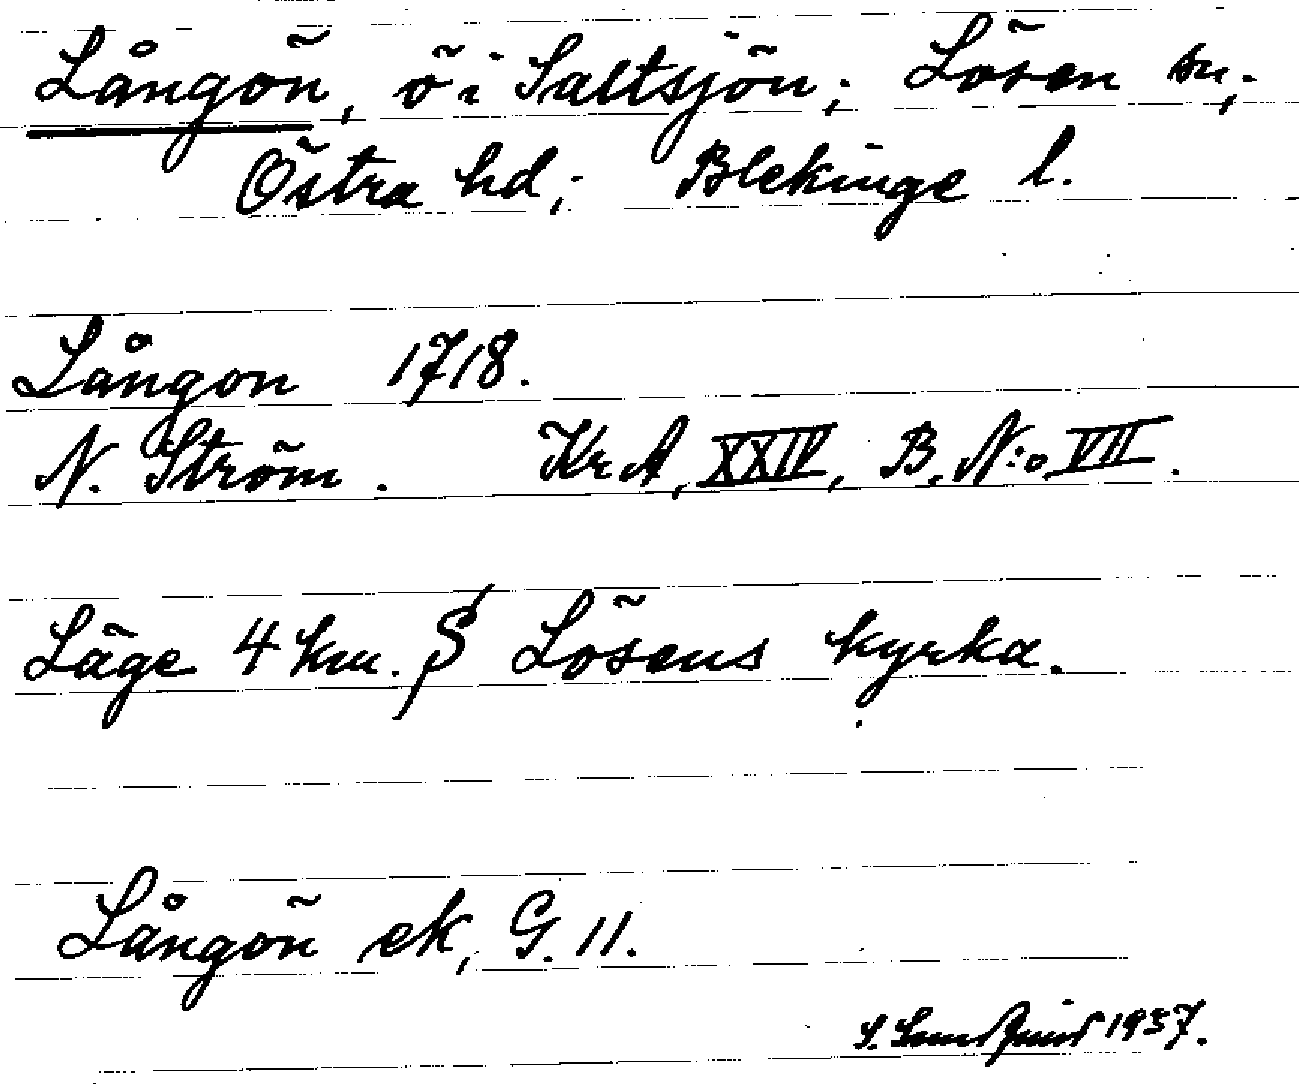 Långön, ö i Saltsjön; Lösen sn;
Östra hd; Blekinge l.
Långon 1718.
N. Ström. KrA, XXIV, B. N:o VII.
Läge 4 km. S Lösens kyrka.
Långön ek, G. 11.
S. 1937.